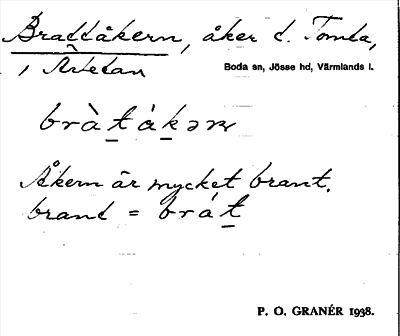 Brattåkern, åker t. Tomta,
i Årtetan
Boda sn, Jösse hd, Värmlands l.
bràt̲àk̲ərn
Åkern är mycket brant.
brant = bràt̲
P. O. GRANÉR 1938.